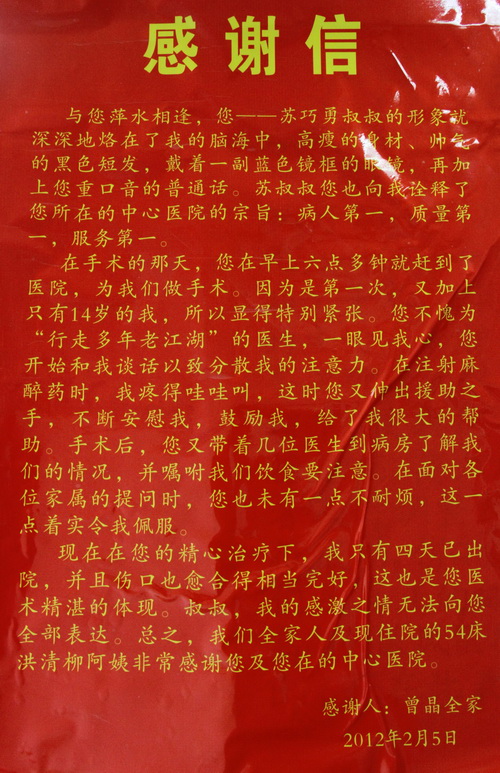 感谢信
与您萍水相逢，您——苏巧勇叔叔的形象就
深深地烙在了我的脑海中，高瘦的身材、帅气
的黑色短发，戴着一副蓝色镜框的眼镜，再加
上您重口音的普通话。苏叔叔您也向我诠释了
您所在的中心医院的宗旨：病人第一，质量第
一，服务第一。
在手术的那天，您在早上六点多钟就赶到了
医院，为我们做手术。因为是第一次，又加上
只有14岁的我，所以显得特别紧张。您不愧为
“行走多年老江湖”的医生，一眼见我心，您
开始和我谈话以致分散我的注意力。在注射麻
醉药时，我疼得哇哇叫，这时您又伸出援助之
手，不断安慰我，鼓励我，给了我很大的帮
助。手术后，您又带着几位医生到病房了解我
们的情况，并嘱咐我们饮食要注意。在面对各
位家属的提问时，您也未有一点不耐烦，这一
点着实令我佩服。
现在在您的精心治疗下，我只有四天已出
院，并且伤口也愈合得相当完好，这也是您医
术精湛的体现。叔叔，我的感激之情无法向您
全部表达。总之，我们全家人及现住院的54床
洪清柳阿姨非常感谢您及您在的中心医院。
感谢人：曾晶全家
2012年2月5日